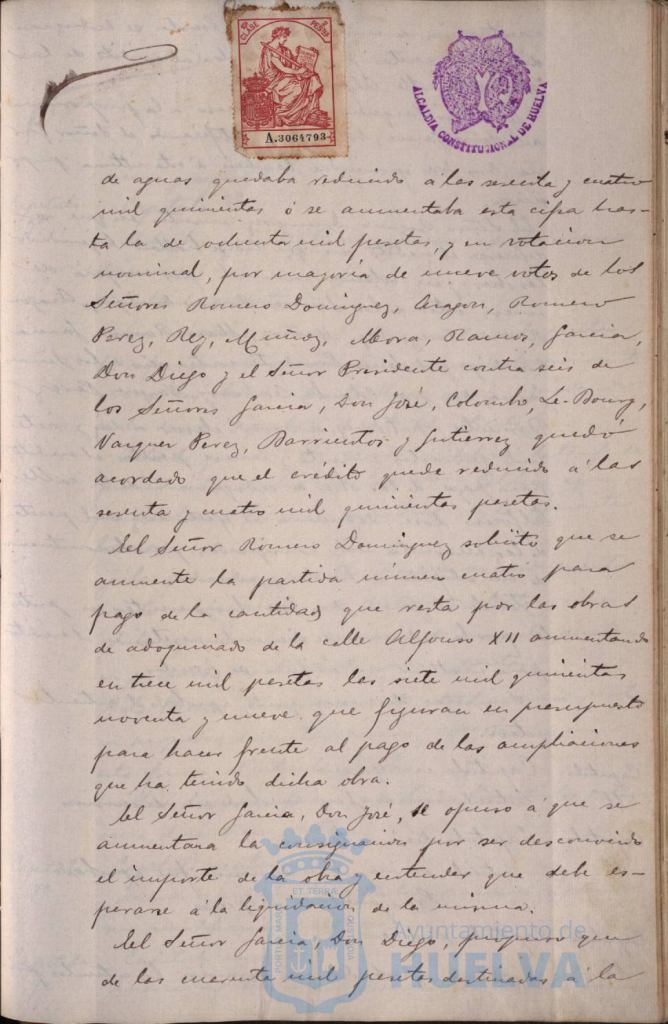 CLASE PESETA
A.3064793
ALCALDIA CONSTITUCIONAL DE HUELVA
de aguas quedaba reducido á las sesenta y cuatro
mil quinientas ó se aumentaba esta cifra has-
ta la de ochenta mil pesetas, y en votacion
nominal, por mayoría de nueve votos de los
Señores Romero Dominguez, Aragon, Romero
Perez, Rey, Muñoz, Mora, Ramos, Garcia,
Don Diego y el Señor Presidente contra seis de
los Señores Garcia, Don José, Colombo, Le-Bourg,
Vazquez Perez, Barrientos y Gutierrez quedó
acordado que el crédito quede reducido á las
sesenta y cuatro mil quinientas pesetas.
El Señor Romero Dominguez solicitó que se
aumente la partida número cuatro para
pago de la cantidad que resta por las obras
de adoquinado de la calle Alfonso XII aumentando
en trece mil pesetas las siete mil quinientas
noventa y nueve que figuran en presupuesto
para hacer frente al pago de las ampliaciones
que ha tenido dicha obra.
El Señor Garcia, Don José, se opuso á que se
aumentara la consignacion por ser desconocido
el importe de la obra y entender que debe es-
perarse á la liquidacion de la misma.
El Señor Garcia, Don Diego, propuso que
de las cuarenta mil pesetas destinadas á la
PORTUS MARIS ET TERRAE CUSTODIA
Ayuntamiento de
HUELVA